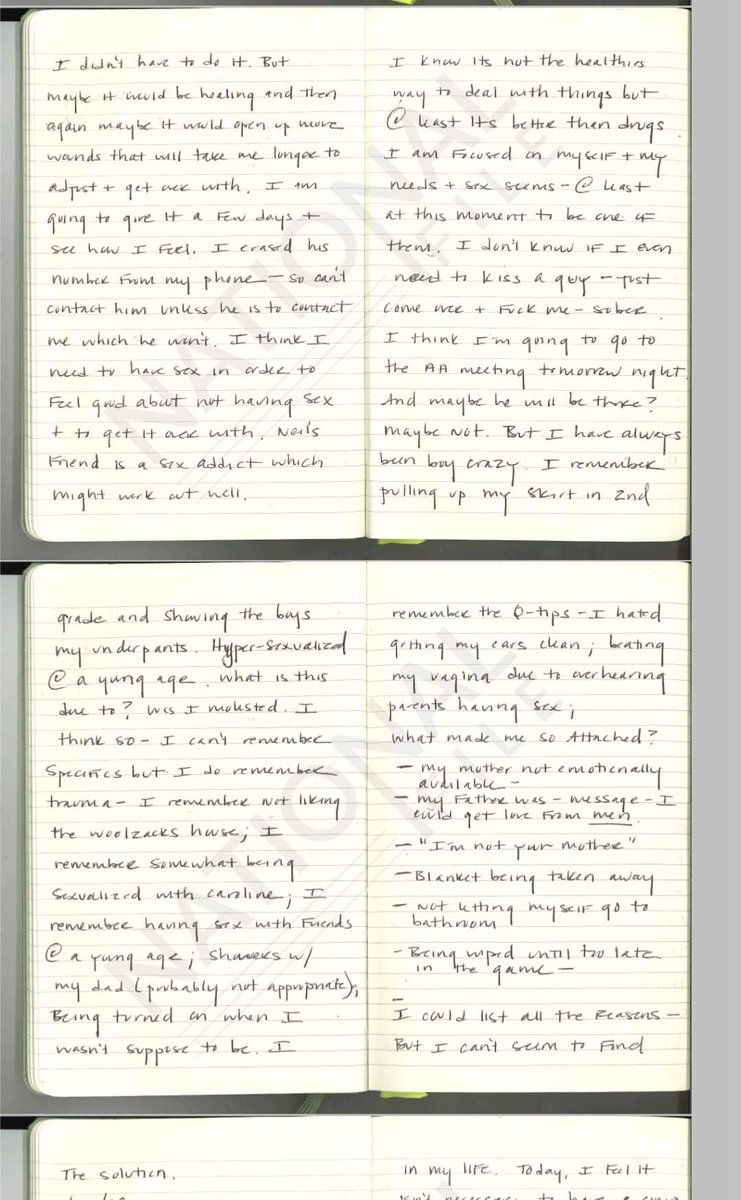 I didn't have to do it. But
maybe it would be healing and then
again maybe it would open up more
wounds that will take me longer to
adjust + get over with. I am
going to give it a few days +
see how I feel. I erased his
number from my phone - so can't
contact him unless he is to contact
me which he won't. I think I
need to have sex in order to
feel good about not having sex
+ to get it over with. Neil's
friend is a sex addict which
might work out well.
I know its not the healthies
way to deal with things but
@ least its better than drugs.
I am focused on myself + my
needs + sex seems - @ least
at this moment to be one of
them. I don't know if I even
need to kiss a guy - just
come over + fuck me - sober.
I think I'm going to go to
the AA meeting tomorrow night.
And maybe he will be there?
maybe not. But I have always
been boy crazy. I remember
pulling up my skirt in 2nd
grade and showing the boys
my underpants. Hyper-sexualized
@ a yung age. what is this
due to? Was I molested. I
think so - I can't remember
specifics but I do remember
trauma - I remember not liking
the woolzacks house; I
remember somewhat being
sexualized with caroline; I
remember having sex with friends
@ a yung age; showers w/
my dad (probably not appropriate);
Being turned on when I
wasn't suppose to be. I
remember the Q-tips - I hated
getting my ears clean; beating
my vagina due to overhearing
parents having sex;
What made me so Attached?
- my mother not emotionally
available -
- my Father was - message - I
could get love from men
- "I'm not your mother"
- Blanket being taken away
- Not letting myself go to
bathroom
- Being wiped until too late
in the game -
-
I could list all the reasons -
But I can't seem to find
The solution.
in my life. Today, I feel it
NATIONAL FILE
NATIONAL FILE